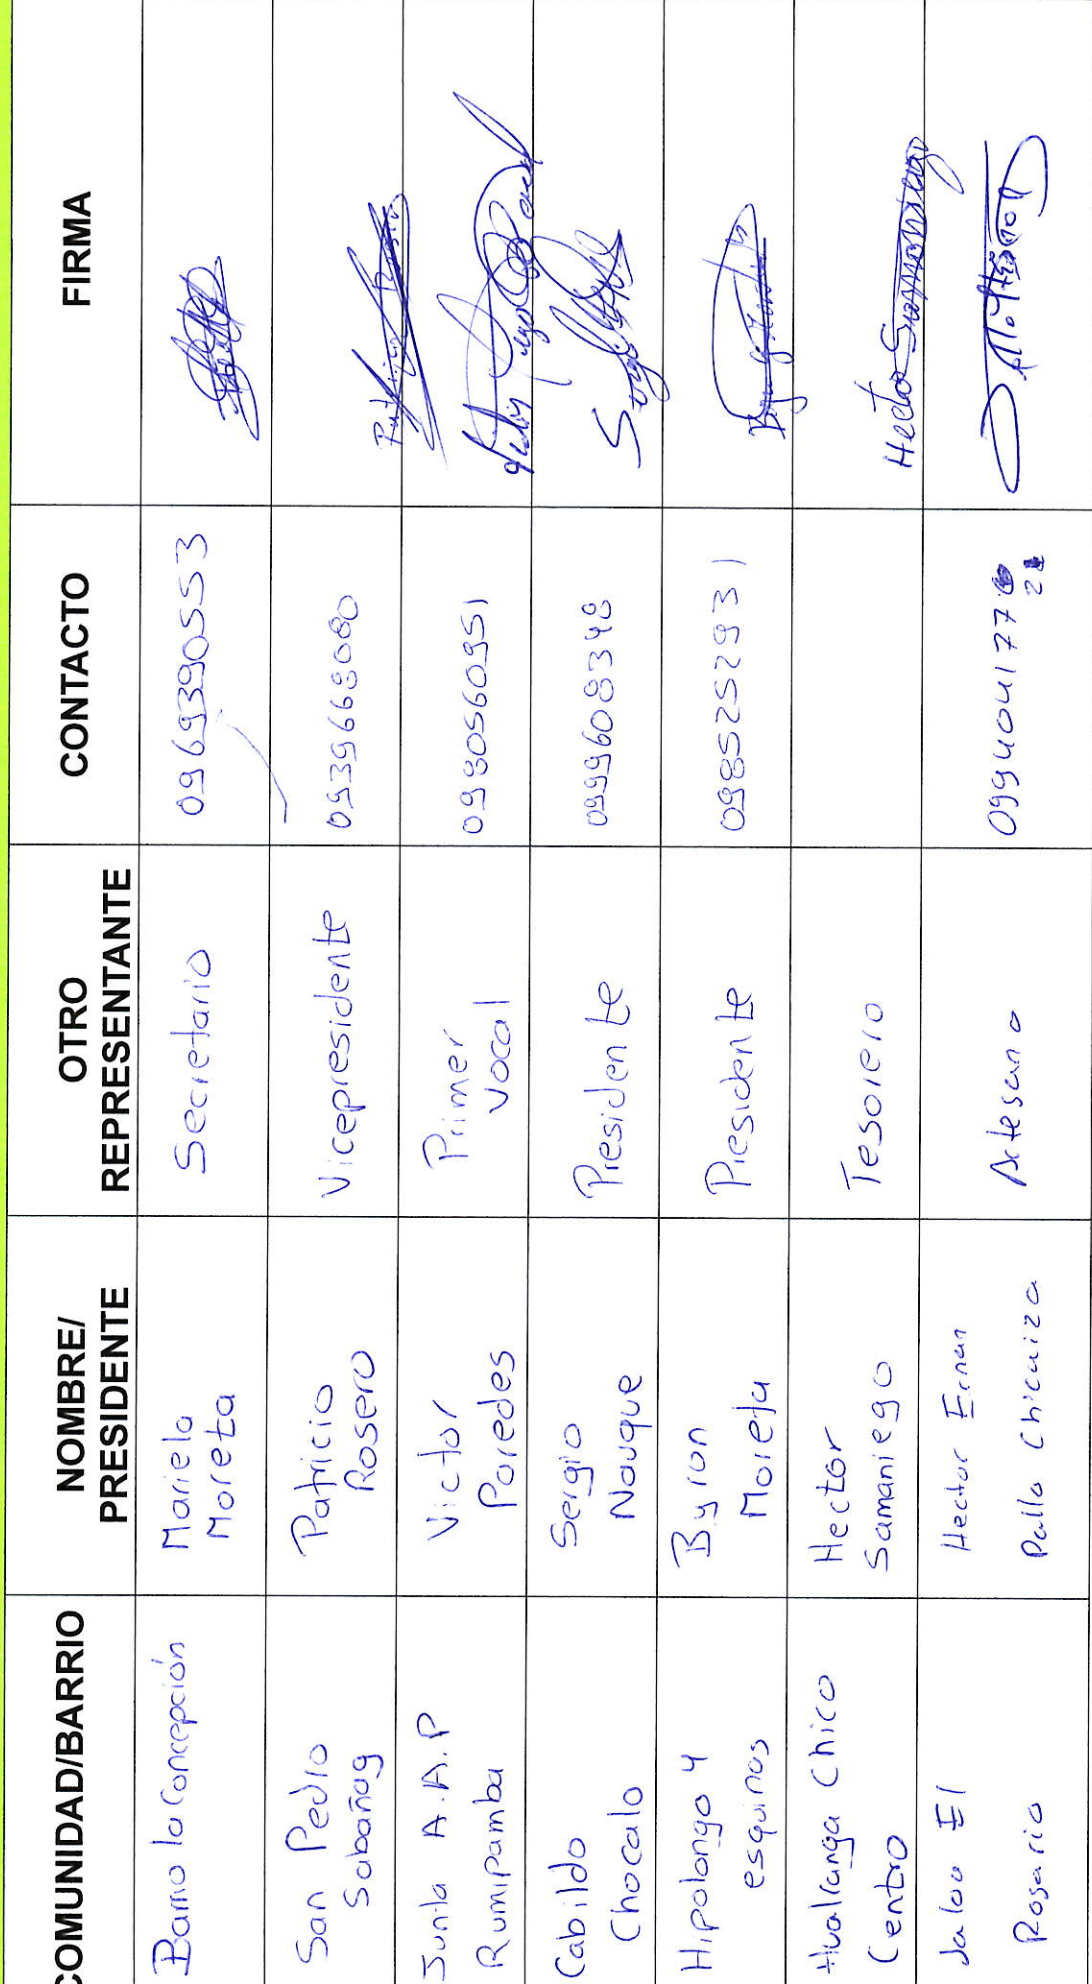 COMUNIDAD/BARRIO NOMBRE/ PRESIDENTE OTRO REPRESENTANTE CONTACTO FIRMA
Barrio la Concepción Mariela Moreta Secretario 0969390553
San Pedro Sabañag Patricio Rosero Vicepresidente 0939668080
Junta A.A.P Rumipamba Victor Paredes Primer vocal 0980560951
Cabildo Chocalo Sergio Nauque Presidente 0999608348
Hipolongo 4 esquinas Byron Moreta Presidente 0985252931
Hualcanga Chico Centro Hector Samaniego Tesorero Hector Samaniego
Jaloa El Rosario Hector Ernan Pallo Chicaiza Artesano